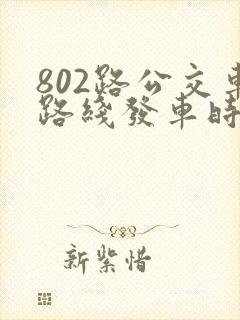 802路公交車
路綫發車時
新紫惜